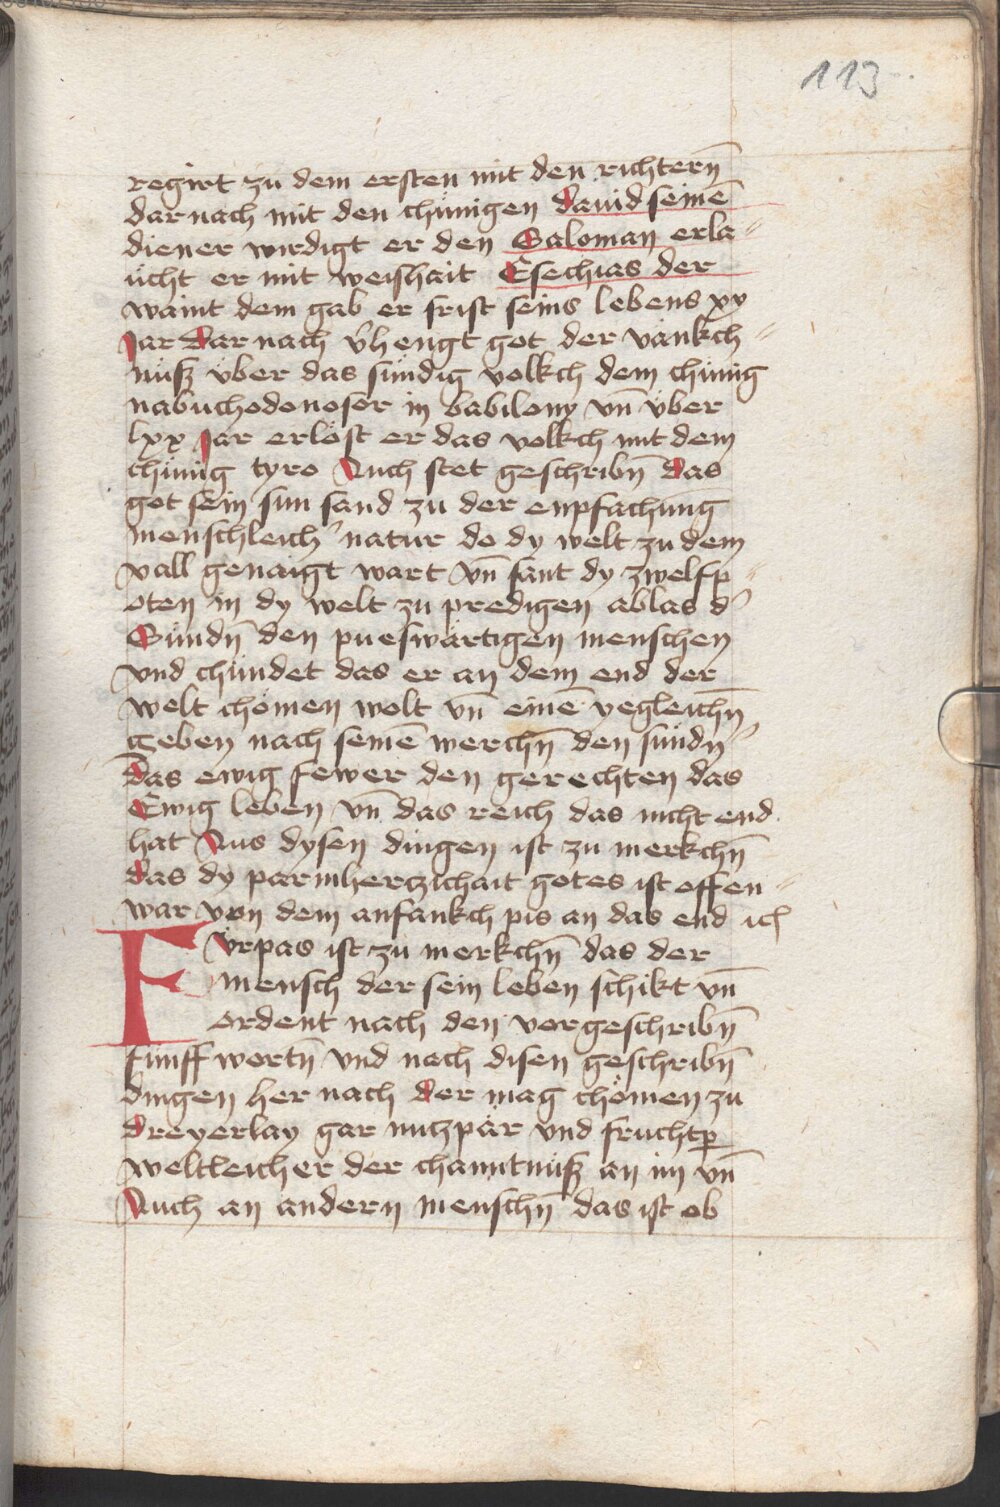 113
regirt zu dem ersten mit den richterñ
dar nach mit den chünigen dauid seinē
diener wirdigt er den Saloman erla-
ücht er mit weishait Esechias der
waint dem gab er frist seins lebens xv
Jar Dar nach v̉hengt got der vänkch-
nüß vber das sündig volkch dem chünig
nabuchodonosor in babilony vn̄ vber
lxx Jar erlöst er das volkch mit dem
chünig tyro Auch stet geschribn̄ das
got sein sun sand zu der enpfachung
menschleich̉ natur do dy welt zu dem
vall genaigt wart vn̄ sant dy zwelfp-
oten in dy welt zu predigen ablas d̉
Sündn̄ den pueswärtigen menschen
vnd chündet das er an dem end der
welt chömen wolt vn̄ einē yegleichn̄
geben nach seinē werchn̄ den sündn̉
das ewig fewer den gerechten das
Ewig leben vn̄ das reich das nicht end
hat Aus dysen dingen ist zu merkchn̄
das dy parmherczichait gotes ist offen-
war von dem anfankch pis an das end ich
Fürpas ist zu merkchn̄ das der
mensch der sein leben schikt vn̄
ordent nach den vorgeschribn̄
fünff wortn̄ vnd nach disen geschribn̄
dingen her nach der mag chömen zu
dreyerlay gar nuczpär vnd fruchtp̱
weltleicher der channtnüß an im vn̄
Auch an andern menschn̄ das ist ob